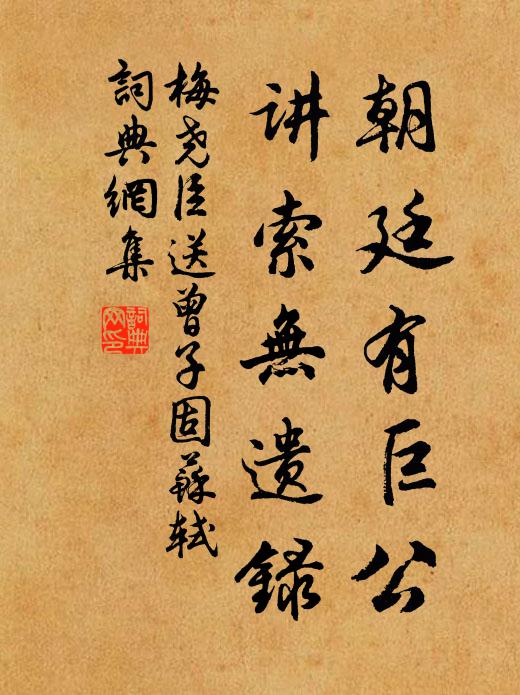 朝廷有巨公
讲索無遗録
梅尧臣送曾子固蘇轼
詞典網集
詞典網印